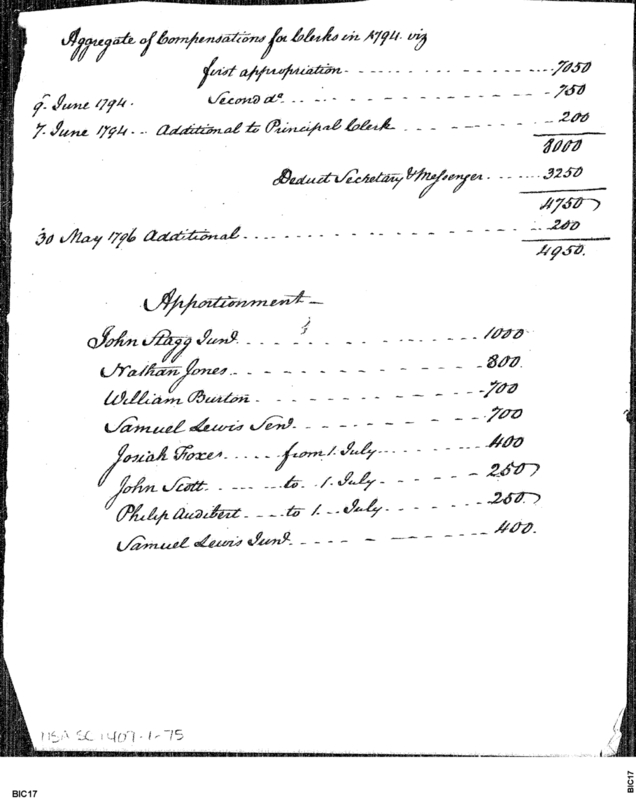 Aggregate of Compensations for Clerks in 1794. viz
first appropriation - - - - - - - - - - 7050
9. June 1794. Second do. - - - - - - - - - - 750
7. June 1794 - - Additional to Principal Clerk - - - - - - - 200
8000
Deduct Secretary & Messenger - - - - - 3250
4750
30 May 1796 Additional - - - - - - - - - - - - - 200
4950.
Apportionment -
John Stagg Junr. - - - - - - - - - - 1000
Nathan Jones - - - - - - - - - - 800.
William Burton - - - - - - - - - - 700
Samuel Lewis Senr. - - - - - - - - - - 700
Josiah Foxes - - - - from 1. July - - - - - - 400
John Scott - - - - - to - 1. July - - - - - 250
Philip Audibert - - - to 1. - - July - - - - - 250
Samuel Lewis Junr. - - - - - - - - - - 400.
MSA SC 1407-1-75
BIC17
BIC17